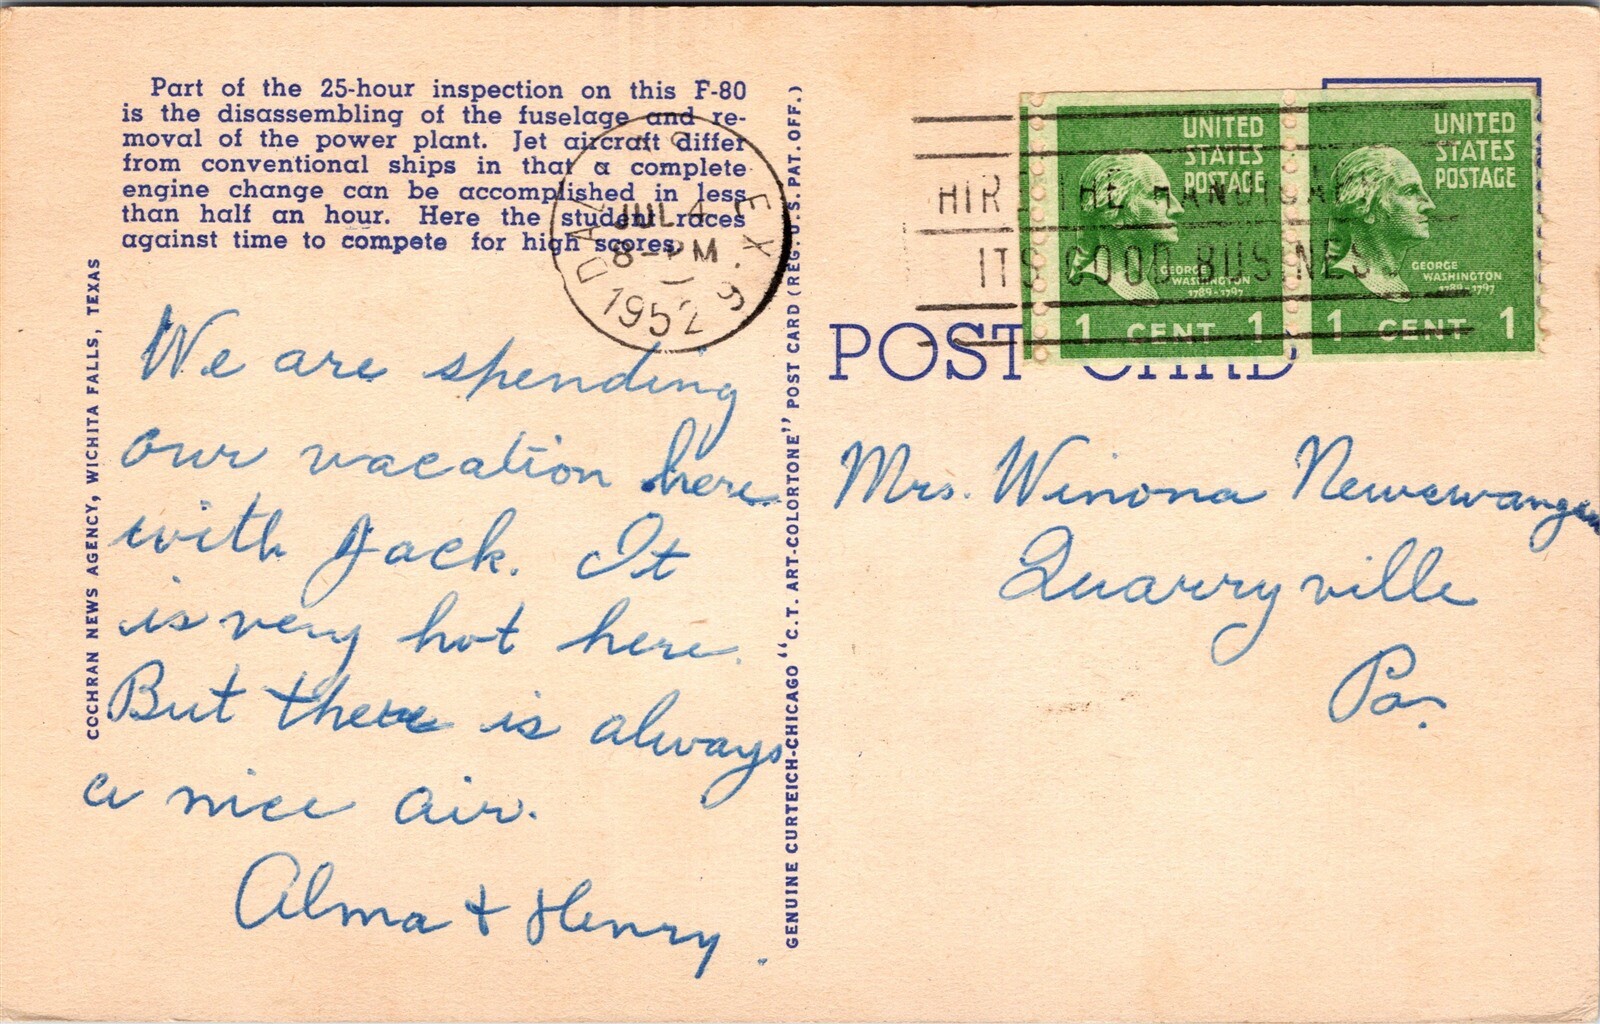 Part of the 25-hour inspection on this F-80
is the disassembling of the fuselage and re-
moval of the power plant. Jet aircraft differ
from conventional ships in that a complete
engine change can be accomplished in less
than half an hour. Here the student races
against time to compete for high scores.
COCHRAN NEWS AGENCY, WICHITA FALLS, TEXAS
We are spending
our vacation here
with Jack. It
is very hot here.
But there is always
a nice air.
Alma + Henry
GENUINE CURTEICH-CHICAGO "C.T. ART-COLORTONE" POST CARD (REG. U.S. PAT. OFF.)
JUL 4
8 - PM
1952
HIRE THE HANDICAP
ITS GOOD BUSINESS
UNITED
STATES
POSTAGE
GEORGE
WASHINGTON
1789-1797
1 CENT 1
UNITED
STATES
POSTAGE
GEORGE
WASHINGTON
1789-1797
1 CENT 1
POST CARD
Mrs. Winona Newswanger
Quarryville
Pa.